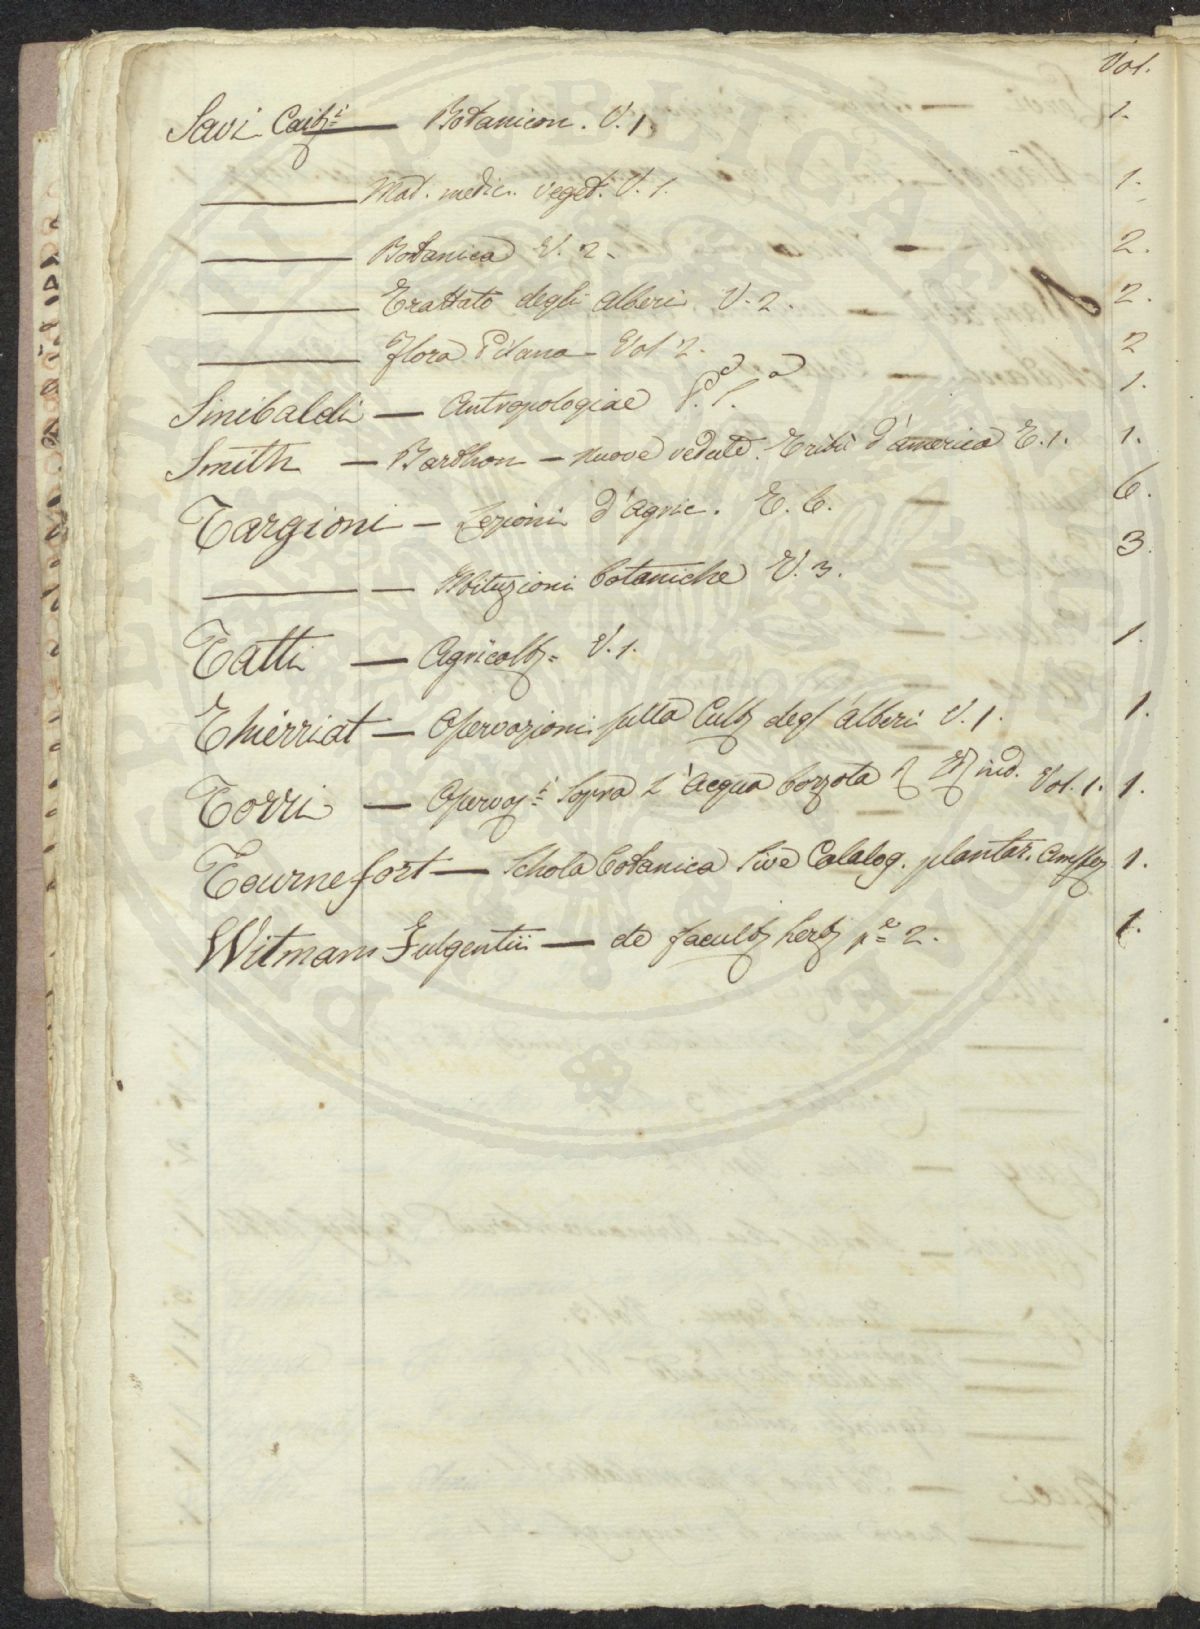 Vol.
Savi Caij — Botanicon. V. 1. 1.
Mat. medic. veget. V. 1. 1.
Botanica V. 2. 2.
Trattato degli alberi V. 2. 2.
flora Pisana – Vol 2. 2
Sinibaldi — Antropologiae P. 1. 1.
Smith — Barthon – nuove vedute. Tribù d'america T. 1. 1.
Targioni – Lezioni d'Agric. T. 6. 6.
— Istituzioni botaniche V. 3. 3.
Tatti — Agricolt. V. 1. 1.
Thierriat — Osservazioni sulla Cult degl'alberi V. 1. 1.
Torri — Osservaz. Sopra L'Acqua borzota ind. Vol. 1. 1.
Tournefort — Schola botanica Sive Catalog. plantar. 1.
Witmans Fulgentii — de facult herb p.e 2. 1.
PUBLICAE